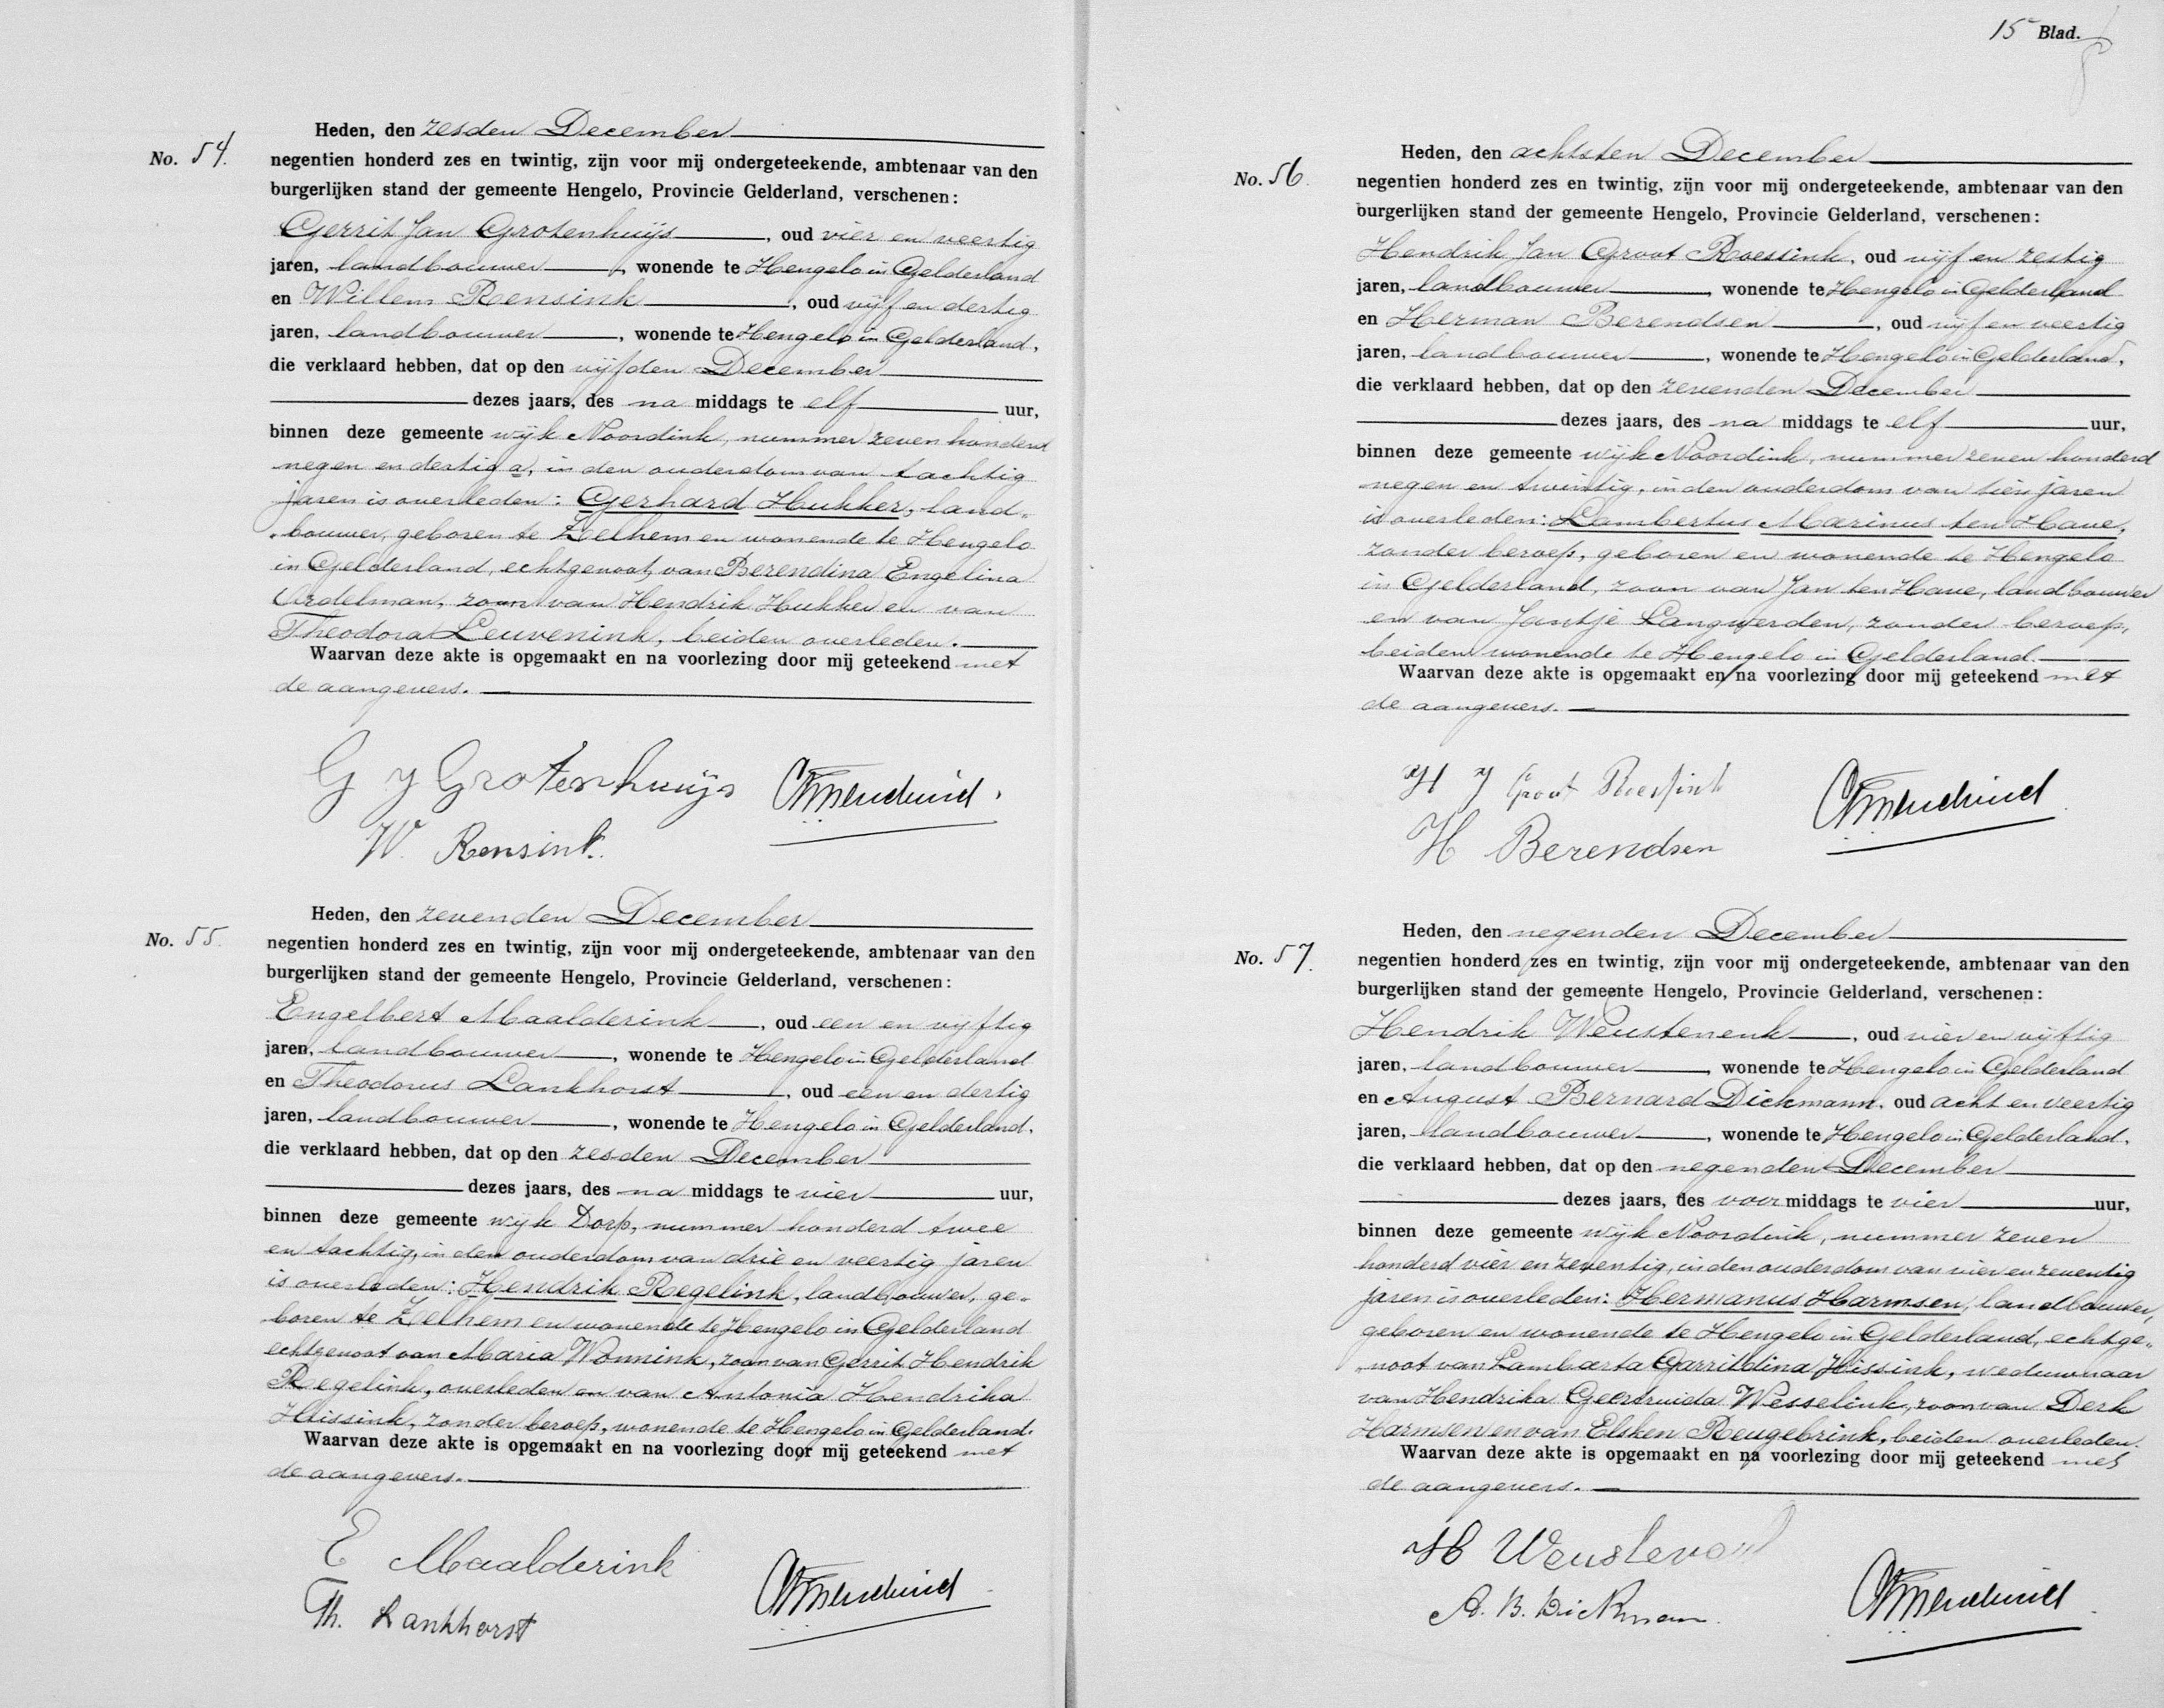 Heden, den zesden December
No. 54.
negentien honderd zes en twintig, zijn voor mij ondergeteekende, ambtenaar van den
burgerlijken stand der gemeente Hengelo, Provincie Gelderland, verschenen:
Gerrit Jan Grotenhuijs, oud vier en veertig
jaren, landbouwer, wonende te Hengelo in Gelderland
en Willem Rensink, oud vijf en dertig
jaren, landbouwer, wonende te Hengelo in Gelderland,
die verklaard hebben, dat op den vijfden December
dezes jaars, des na middags te elf uur,
binnen deze gemeente wijk Noordink, nummer zeven honderd
negen en dertig a, in den ouderdom van tachtig
jaren is overleden: Gerhard Hukker, land-
bouwer, geboren te Zelhem en wonende te Hengelo
in Gelderland, echtgenoot van Berendina Engelina
zoon van Hendrik Hukker en van
Theodora Leuvenink, beiden overleden.
Waarvan deze akte is opgemaakt en na voorlezing door mij geteekend met
de aangevers.
G J Grotenhuijs
W. Rensink.
Heden, den zevenden December
No. 55.
negentien honderd zes en twintig, zijn voor mij ondergeteekende, ambtenaar van den
burgerlijken stand der gemeente Hengelo, Provincie Gelderland, verschenen:
Engelbert Maalderink, oud een en vyftig
jaren, landbouwer, wonende te Hengelo in Gelderland
en Theodorus Lankhorst, oud een en dertig
jaren, landbouwer, wonende te Hengelo in Gelderland,
die verklaard hebben, dat op den zesden December
dezes jaars, des na middags te vier uur,
binnen deze gemeente wijk Dorp, nummer honderd twee
en tachtig, in den ouderdom van drie en veertig jaren
is overleden: Hendrik Regelink, landbouwer, ge-
boren te Zelhem en wonende te Hengelo in Gelderland
echtgenoot van Maria Wonnink, zoon van Gerrit Hendrik
Regelink, overleden en van Antonia Hendrika
Hissink, zonder beroep, wonende te Hengelo in Gelderland.
Waarvan deze akte is opgemaakt en na voorlezing door mij geteekend met
de aangevers.
E Maalderink
Th. Lankhorst
15e Blad.
Heden, den achtsten December
No. 56.
negentien honderd zes en twintig, zijn voor mij ondergeteekende, ambtenaar van den
burgerlijken stand der gemeente Hengelo, Provincie Gelderland, verschenen:
Hendrik Jan Groot Roessink, oud vijf en zestig
jaren, landbouwer, wonende te Hengelo in Gelderland
en Herman Berendsen, oud vijf en veertig
jaren, landbouwer, wonende te Hengelo in Gelderland,
die verklaard hebben, dat op den zevenden December
dezes jaars, des na middags te elf uur,
binnen deze gemeente wijk Noordink, nummer zeven honderd
negen en twintig, in den ouderdom van tien jaren
is overleden: Lambertus Marinus ten Have,
zonder beroep, geboren en wonende te Hengelo
in Gelderland, zoon van Jan ten Have, landbouwer
en van Jantje Langwerden, zonder beroep,
beiden wonende te Hengelo in Gelderland.
Waarvan deze akte is opgemaakt en na voorlezing door mij geteekend met
de aangevers.
H J Groot Roessink
H Berendsen
Heden, den negenden December
No. 57.
negentien honderd zes en twintig, zijn voor mij ondergeteekende, ambtenaar van den
burgerlijken stand der gemeente Hengelo, Provincie Gelderland, verschenen:
Hendrik Weustenenk, oud vier en vijftig
jaren, landbouwer, wonende te Hengelo in Gelderland
en August Bernard Dickmann, oud acht en veertig
jaren, landbouwer, wonende te Hengelo in Gelderland,
die verklaard hebben, dat op den negenden December
dezes jaars, des voor middags te vier uur,
binnen deze gemeente wijk Noordink, nummer zeven
honderd vier en zeventig, in den ouderdom van vier en zeventig
jaren is overleden: Hermanus Harmsen, landbouwer,
geboren en wonende te Hengelo in Gelderland, echtge-
noot van Lamberta Garritdina Hissink, weduwnaar
van Hendrika Geertruida Wesselink, zoon van Derk
Harmsen en van Elsken Reugebrink, beiden overleden.
Waarvan deze akte is opgemaakt en na voorlezing door mij geteekend met
de aangevers.
A. B. Dickman.